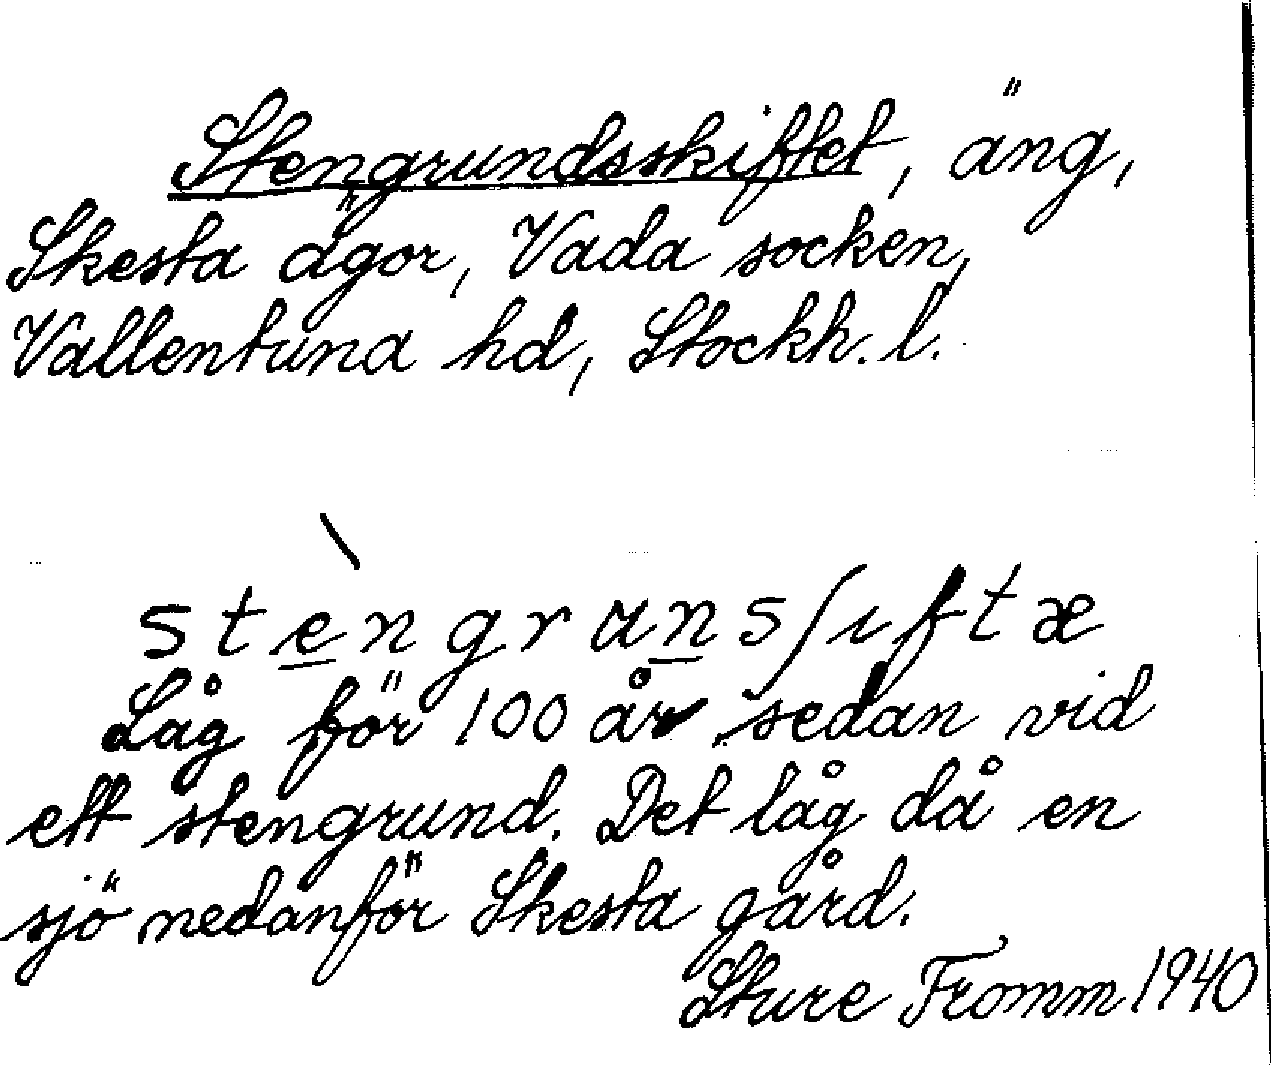 Stengrundsskiftet, äng,
Skesta ägor, Vada socken,
Vallentuna hd, Stockh. l.
stèngrunsʃıftæ
Låg för 100 år sedan vid
ett stengrund. Det låg då en
sjö nedanför Skesta gård.
Sture Fromm 1940